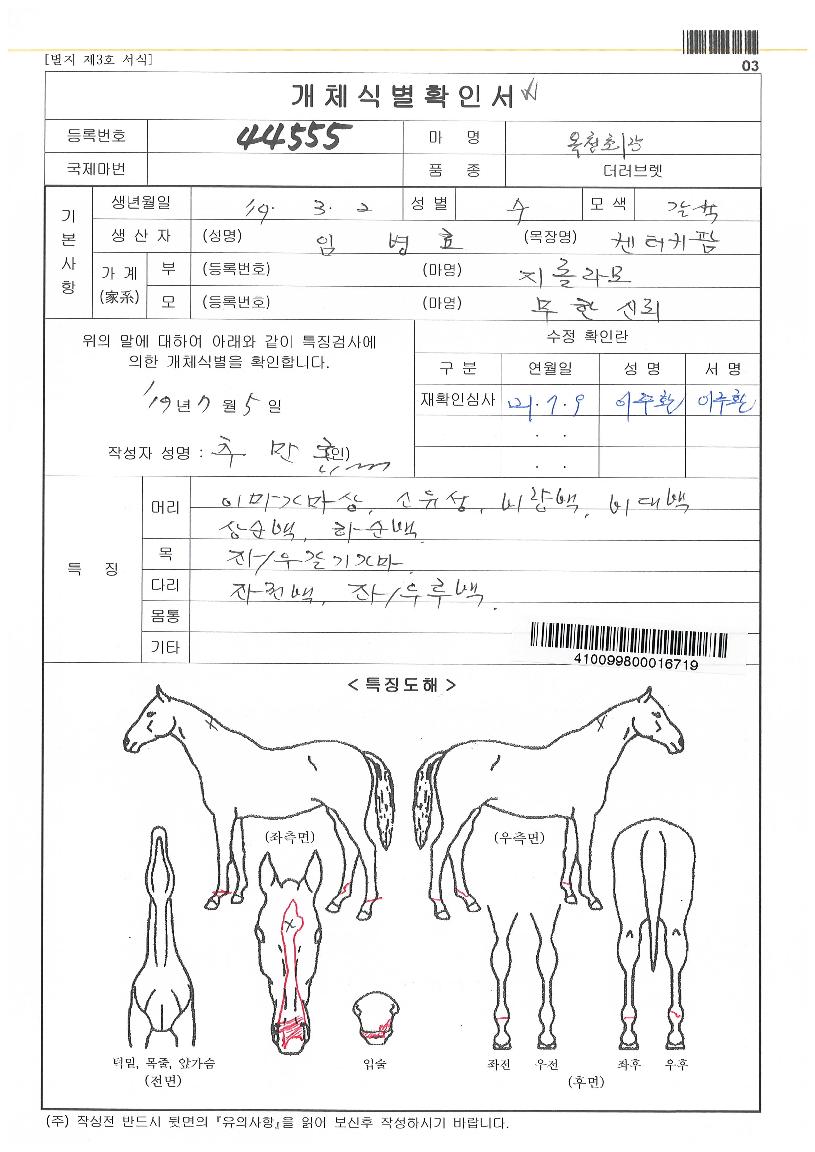 [별지 제3호 서식]
03
개체식별확인서
등록번호 44555 마 명
국제마번 품 종 더러브렛
기본사항
생년월일 19. 3. 2 성별 수 모색 갈색
생산자 (성명) 임 병 효 (목장명) 켄터키팜
가계(家系) 부 (등록번호) (마명) 지롤라모
모 (등록번호) (마명) 무한신뢰
위의 말에 대하여 아래와 같이 특징검사에
의한 개체식별을 확인합니다.
'19년 7월 5일
작성자 성명 : 추 만 호 (인)
수정 확인란
구분 연월일 성명 서명
재확인심사 21. 7. 9 이주환 이주환
. .
. .
특 징
머리 이마가마상, 소유성, 비량백, 비대백
상순백, 하순백.
목 좌/우갈기가마.
다리 좌전백, 좌/우후백.
몸통
기타
410099800016719
<특징도해>
(좌측면) (우측면)
턱밑, 목줄, 앞가슴
(전면)
입술
좌전 우전 좌후 우후
(후면)
(주) 작성전 반드시 뒷면의 『유의사항』을 읽어 보신후 작성하시기 바랍니다.